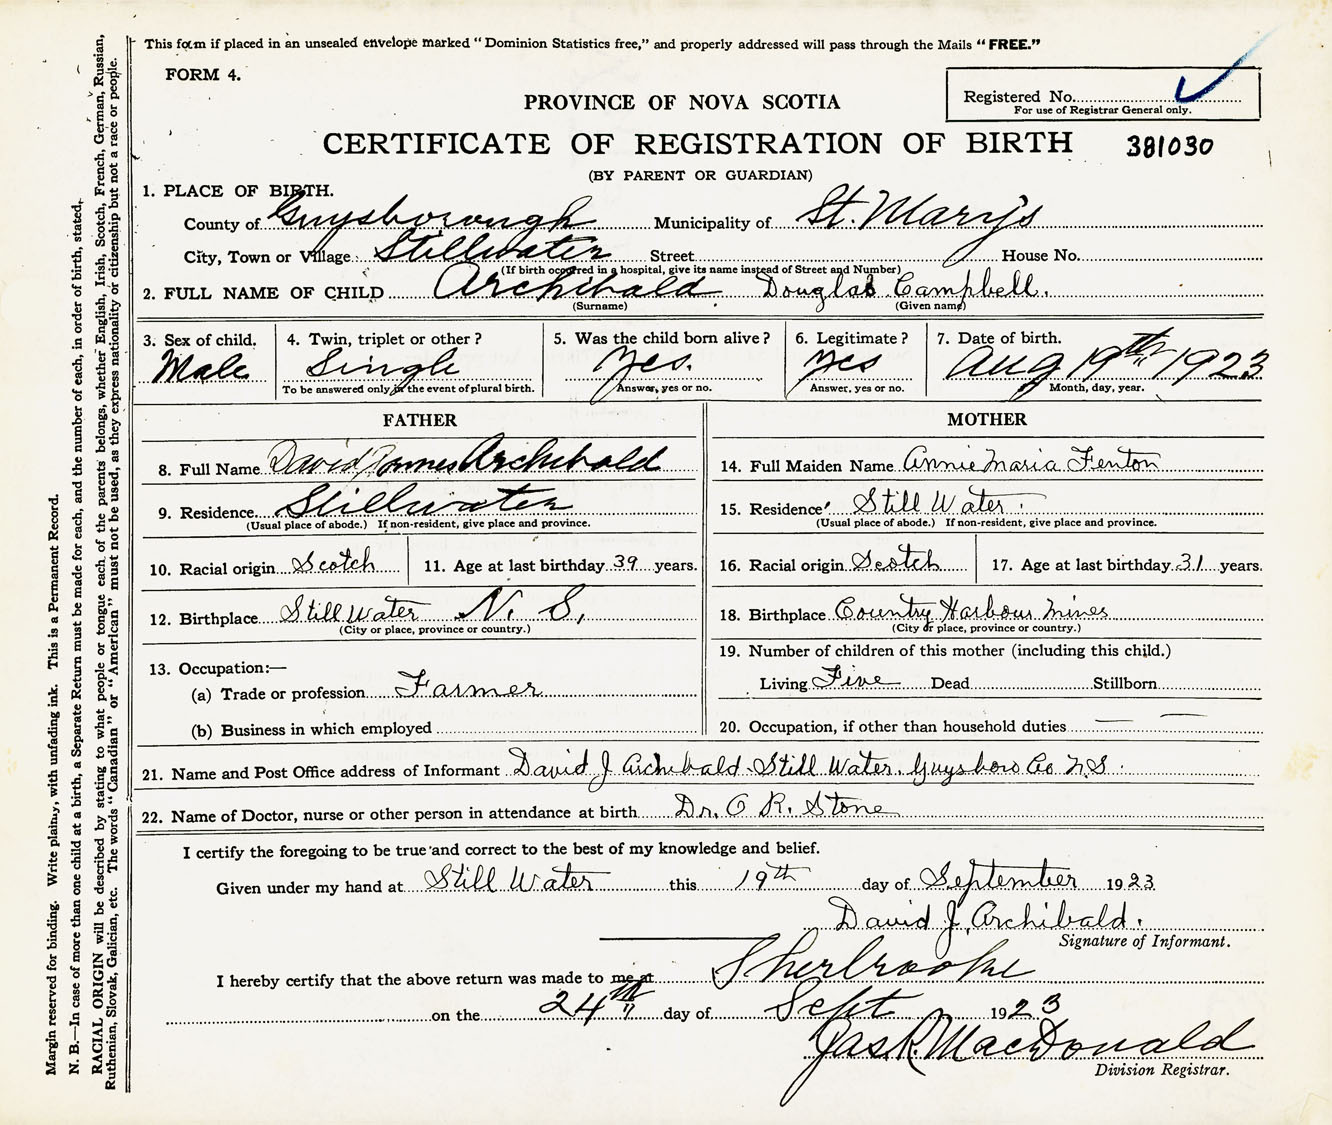 This form if placed in an unsealed envelope marked "Dominion Statistics free," and properly addressed will pass through the Mails "FREE."
FORM 4.
Registered No.
For use of Registrar General only.
PROVINCE OF NOVA SCOTIA
CERTIFICATE OF REGISTRATION OF BIRTH 381030
(BY PARENT OR GUARDIAN)
1. PLACE OF BIRTH.
County of Guysborough Municipality of St. Mary's
City, Town or Village Stillwater Street House No.
(If birth occurred in a hospital, give its name instead of Street and Number)
2. FULL NAME OF CHILD Archibald Douglas Campbell.
(Surname) (Given name)
3. Sex of child. 4. Twin, triplet or other? 5. Was the child born alive? 6. Legitimate? 7. Date of birth.
Male Single Yes. Yes Aug 19th 1923
To be answered only in the event of plural birth. Answer, yes or no. Answer, yes or no. Month, day, year.
FATHER
8. Full Name David James Archibald
9. Residence Stillwater
(Usual place of abode.) If non-resident, give place and province.
10. Racial origin Scotch 11. Age at last birthday 39 years.
12. Birthplace Still Water N. S.
(City or place, province or country.)
13. Occupation:—
(a) Trade or profession Farmer
(b) Business in which employed
MOTHER
14. Full Maiden Name Annie Maria Fenton
15. Residence Still Water
(Usual place of abode.) If non-resident, give place and province.
16. Racial origin Scotch 17. Age at last birthday 31 years.
18. Birthplace Country Harbour Mines
(City or place, province or country.)
19. Number of children of this mother (including this child.)
Living Five Dead Stillborn
20. Occupation, if other than household duties
21. Name and Post Office address of Informant David J Archibald Still Water. Guysboro Co N.S.
22. Name of Doctor, nurse or other person in attendance at birth Dr. O R. Stone
I certify the foregoing to be true and correct to the best of my knowledge and belief.
Given under my hand at Still Water this 19th day of September 1923
David J. Archibald.
Signature of Informant.
I hereby certify that the above return was made to me at Sherbrooke
on the 24th day of Sept 1923
Jas. R. MacDonald
Division Registrar.
Margin reserved for binding. Write plainly, with unfading ink. This is a Permanent Record.
N. B.—In case of more than one child at a birth, a Separate Return must be made for each, and the number of each, in order of birth, stated.
RACIAL ORIGIN will be described by stating to what people or tongue each of the parents belongs, whether English, Irish, Scotch, French, German, Russian,
Ruthenian, Slovak, Galician, etc. The words "Canadian" or "American" must not be used, as they express nationality or citizenship but not a race or people.